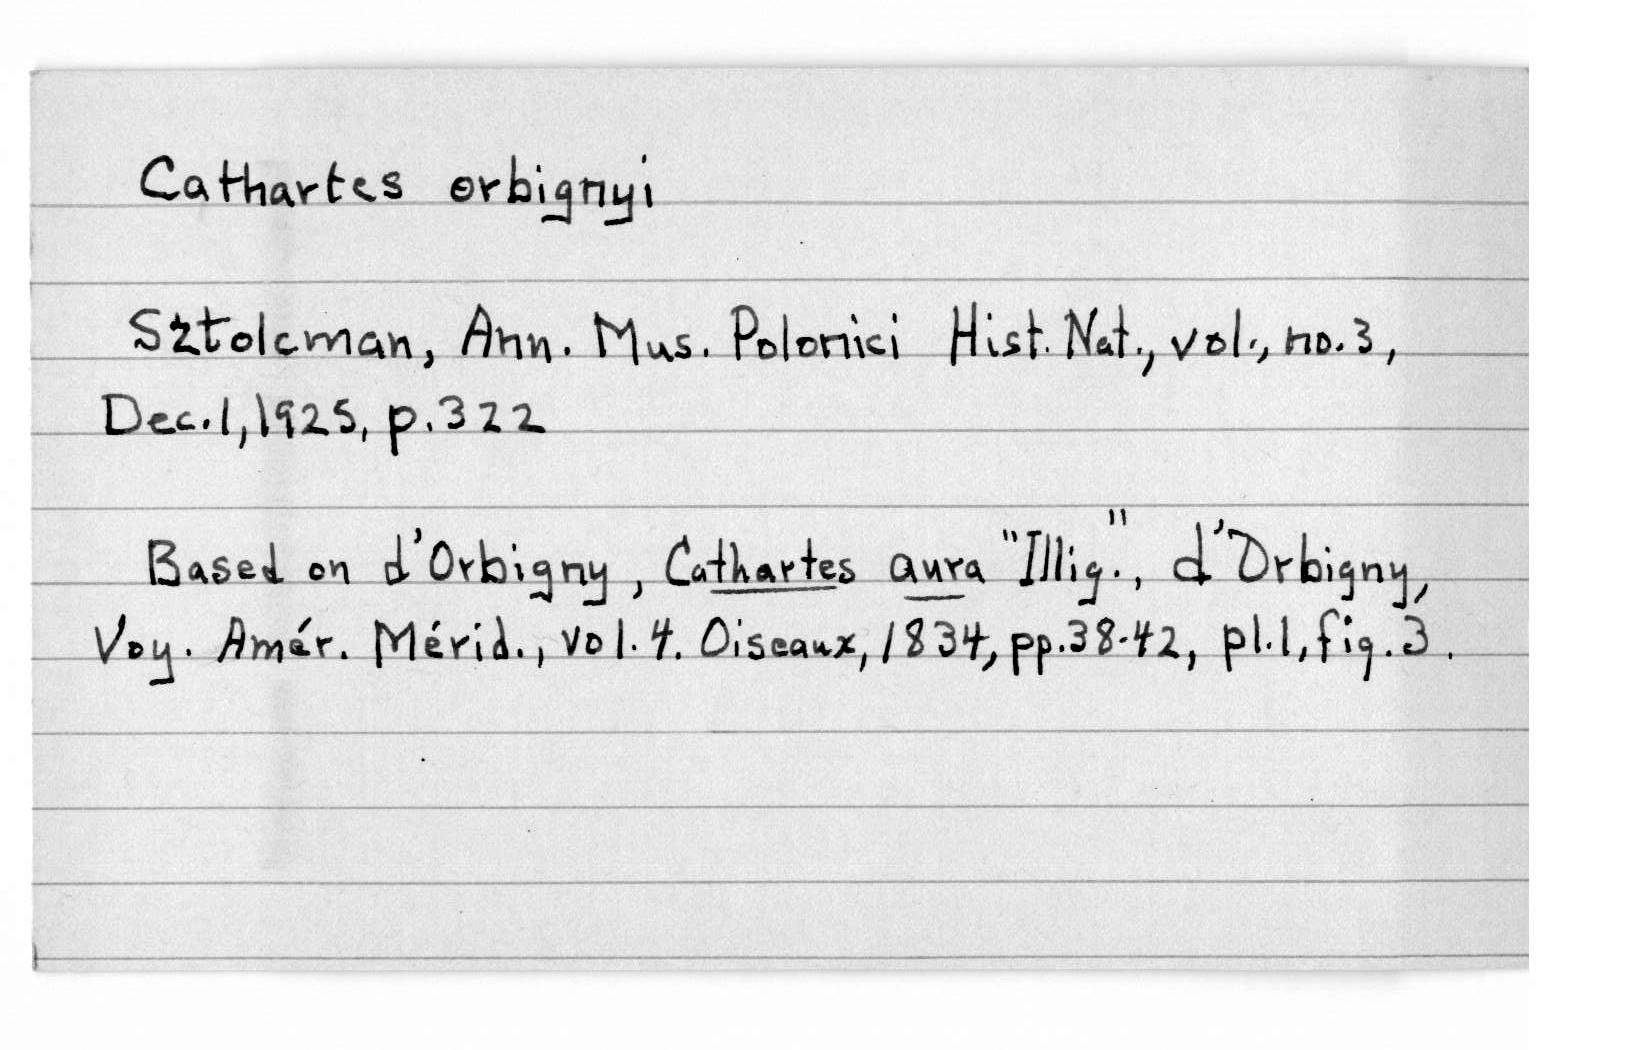 Cathartes orbignyi
Sztolcman, Ann. Mus. Polonici Hist. Nat., vol., no. 3,
Dec. 1, 1925, p. 322
Based on d'Orbigny, Cathartes aura "Illig.", d'Orbigny,
Voy. Amér. Mérid., vol. 4. Oiseaux, 1834, pp. 38-42, pl. 1, fig. 3.